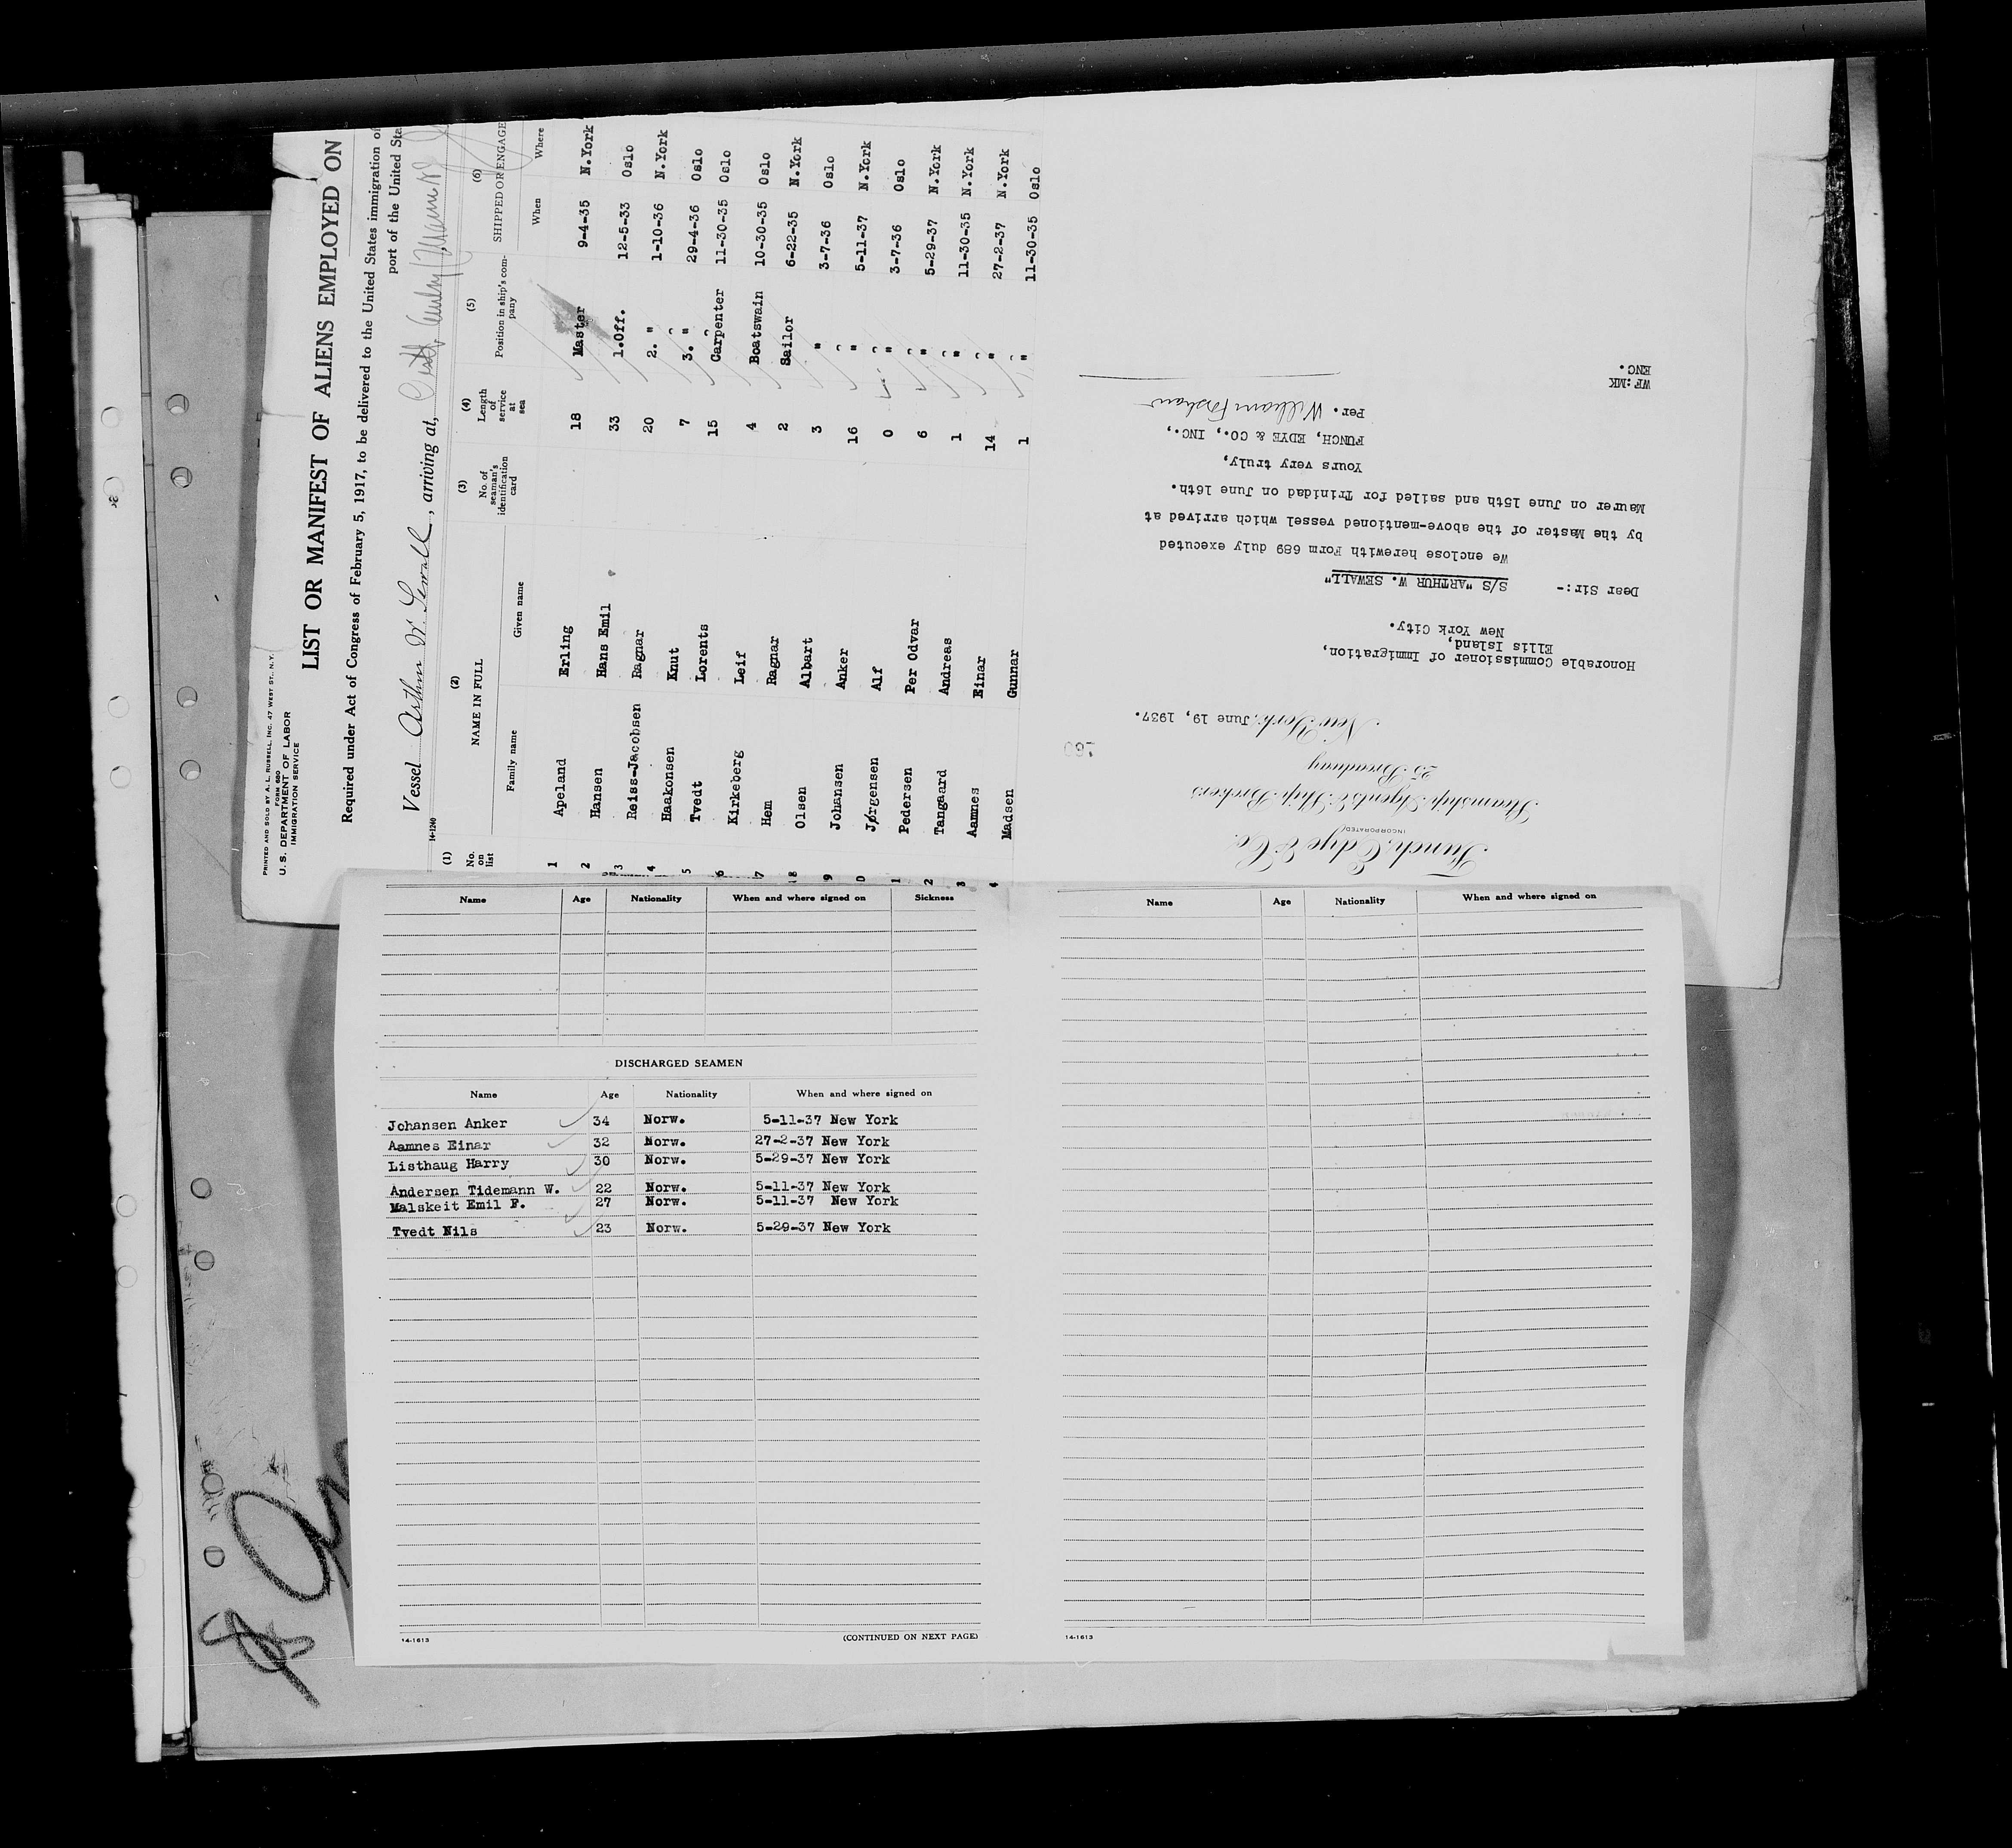 PRINTED AND SOLD BY A. L. RUSSELL, INC. 47 WEST ST., N.Y.
FORM 680
U. S. DEPARTMENT OF LABOR
IMMIGRATION SERVICE
LIST OR MANIFEST OF ALIENS EMPLOYED ON
Required under Act of Congress of February 5, 1917, to be delivered to the United States immigration of
port of the United Sta
Vessel Arthur W. Sewall, arriving at,
14-1240
(1) (2) (3) (4) (5) (6)
No. on list NAME IN FULL No. of seaman's identification card Length of service at sea Position in ship's company SHIPPED OR ENGAGE
Family name Given name When Where
1 Apeland Erling 18 Master 9-4-35 N.York
2 Hansen Hans Emil 33 1.Off. 12-5-33 Oslo
3 Reiss-Jacobsen Ragnar 20 2. " 1-10-36 N.York
4 Haakonsen Knut 7 3. " 29-4-36 Oslo
5 Tvedt Lorents 15 Carpenter 11-30-35 Oslo
6 Kirkeberg Leif 4 Boatswain 10-30-35 Oslo
7 Hem Ragnar 2 Sailor 6-22-35 N.York
8 Olsen Albart 3 " 3-7-36 Oslo
9 Johansen Anker 16 " 5-11-37 N.York
0 Jørgensen Alf 0 " 3-7-36 Oslo
1 Pedersen Per Odvar 6 " 5-29-37 N.York
2 Tangaard Andreas 1 " 11-30-35 N.York
3 Aamnes Einar 14 " 27-2-37 N.York
4 Madsen Gunnar 1 " 11-30-35 Oslo
Funch, Edye & Co.
INCORPORATED
Steamship Agents & Ship Brokers
25 Broadway
New York, June 19, 1937.
Honorable Commissioner of Immigration,
Ellis Island,
New York City.
Dear Sir:- S/S "ARTHUR W. SEWALL"
We enclose herewith Form 689 duly executed
by the Master of the above-mentioned vessel which arrived at
Maurer on June 15th and sailed for Trinidad on June 16th.
Yours very truly,
FUNCH, EDYE & CO., INC.,
Per. William Forshaw
WF:MK
ENC.
Name Age Nationality When and where signed on Sickness
DISCHARGED SEAMEN
Name Age Nationality When and where signed on
Johansen Anker 34 Norw. 5-11-37 New York
Aamnes Einar 32 Norw. 27-2-37 New York
Listhaug Harry 30 Norw. 5-29-37 New York
Andersen Tidemann W. 22 Norw. 5-11-37 New York
Malskeit Emil F. 27 Norw. 5-11-37 New York
Tvedt Nils 23 Norw. 5-29-37 New York
14-1613
(CONTINUED ON NEXT PAGE)
Name Age Nationality When and where signed on
14-1613